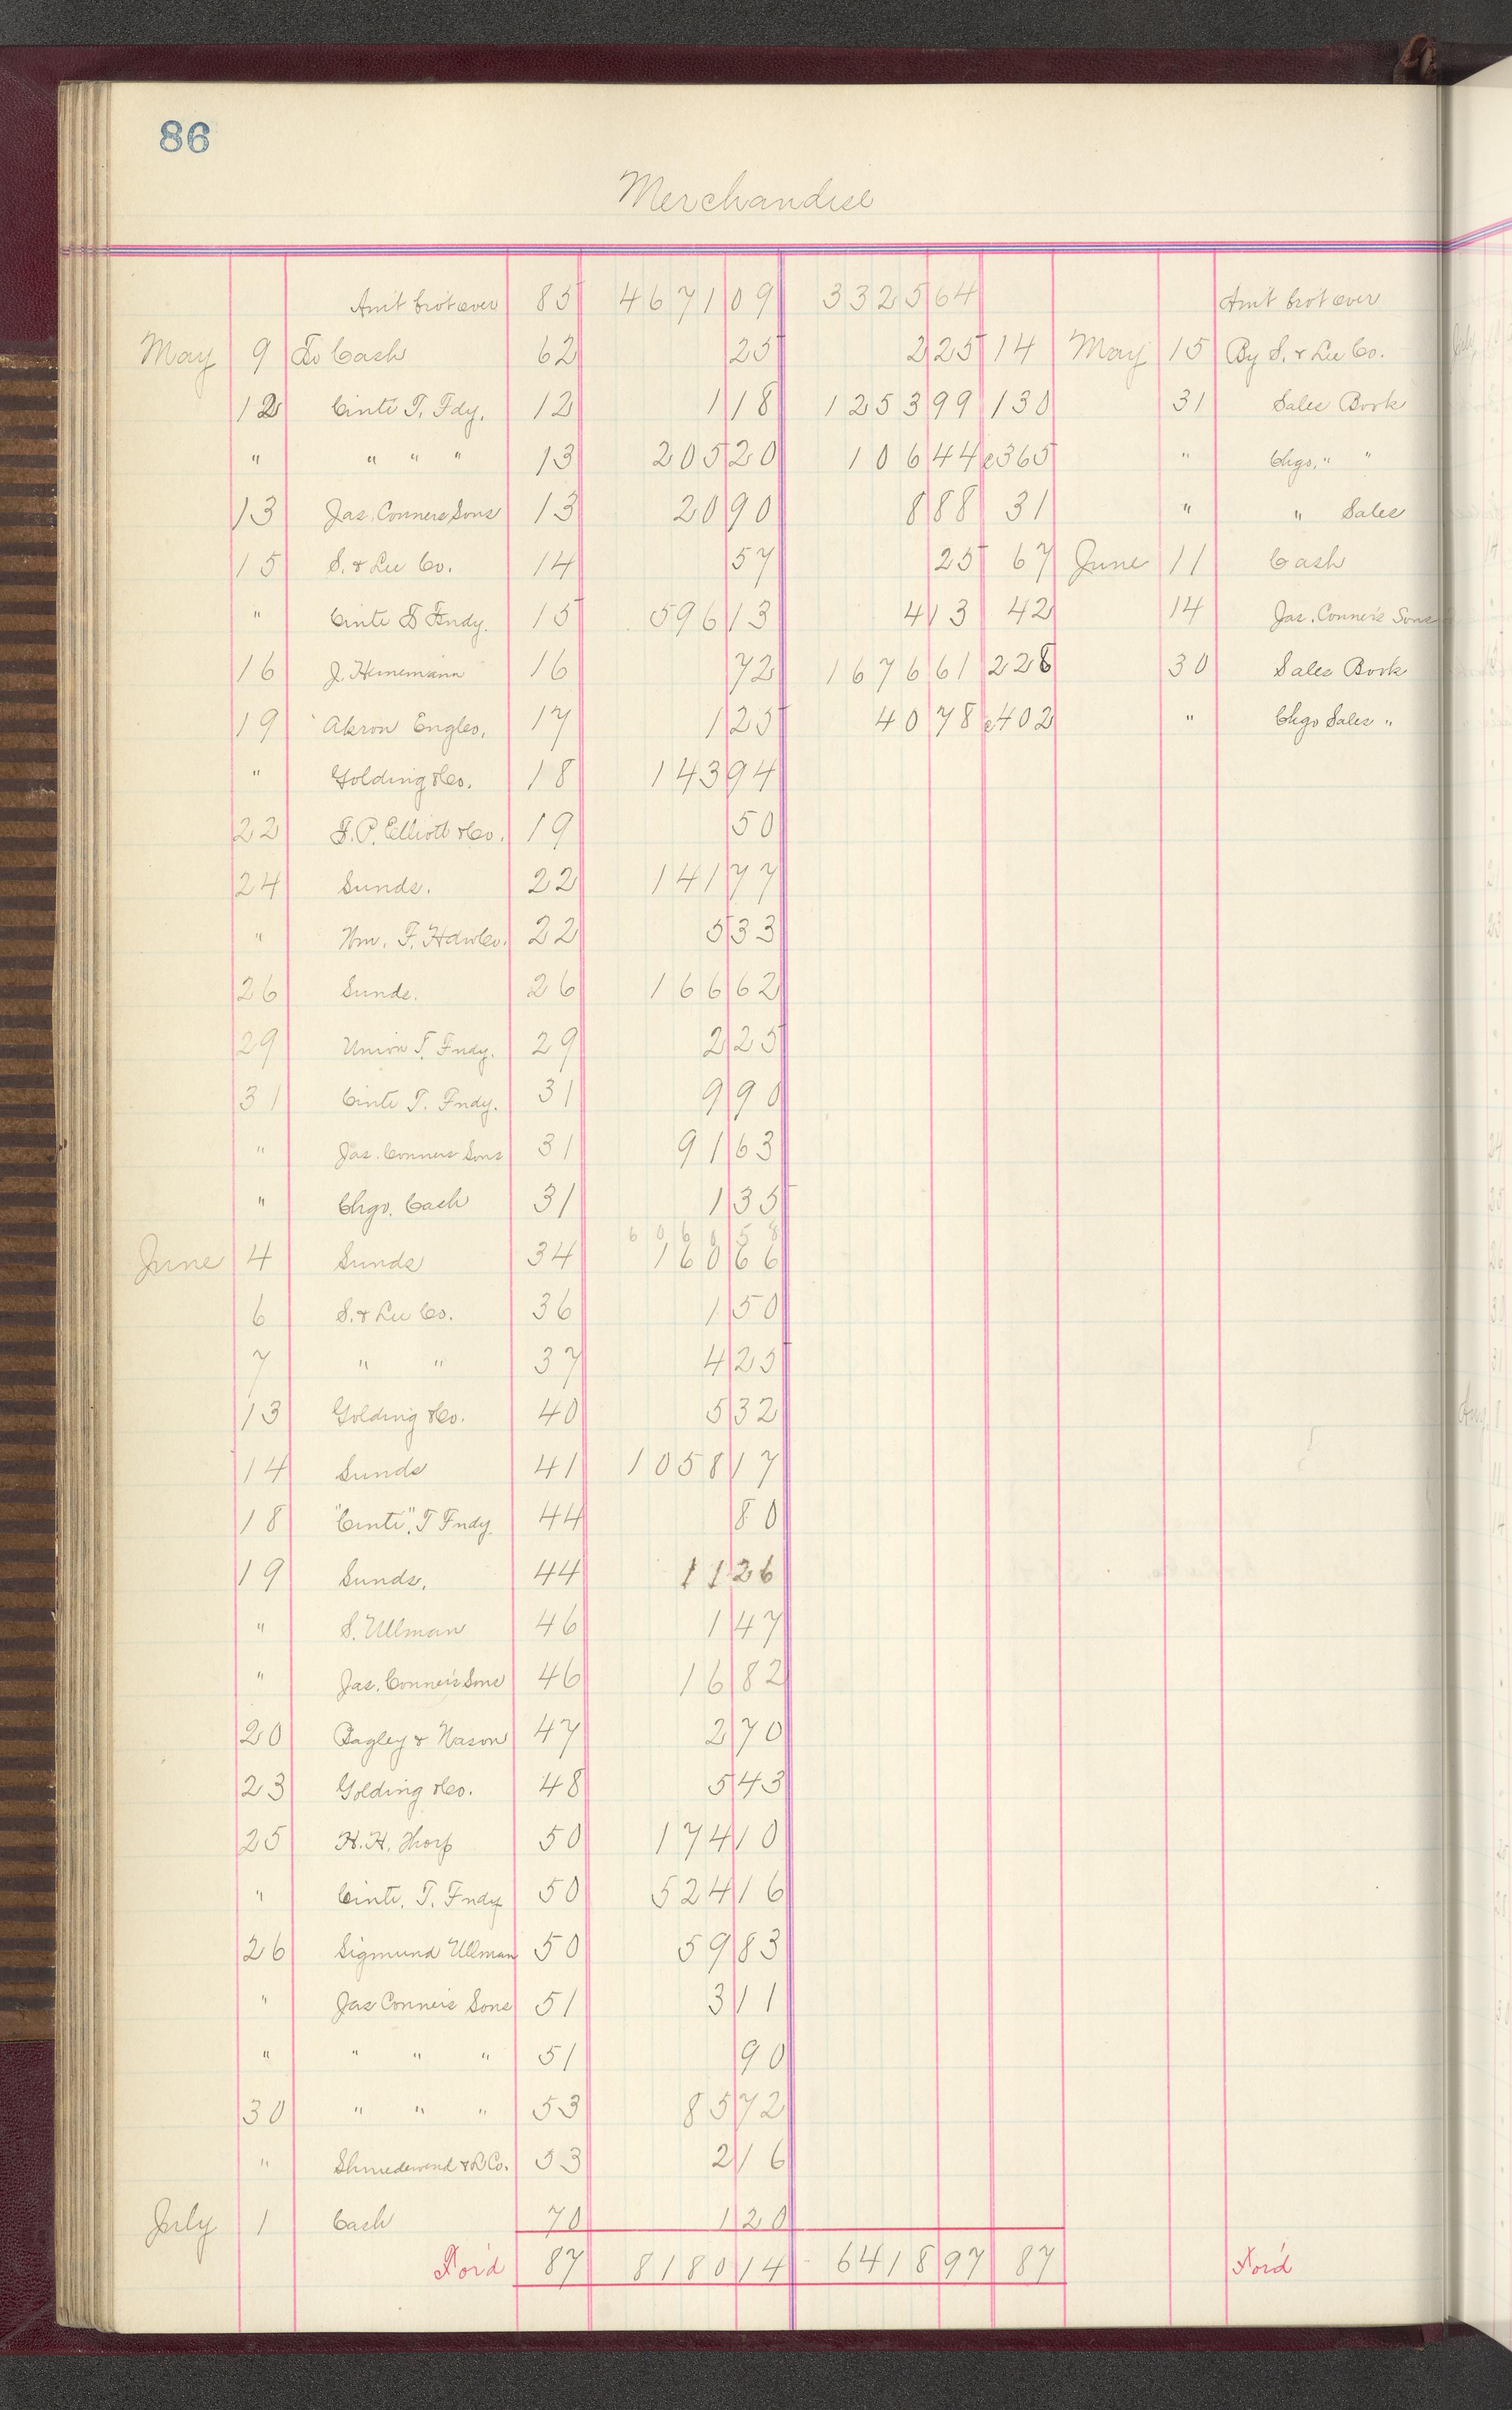 86
Merchandise
Am't bro't over 85 4671 09 3325 64 Am't bro't over
May 9 To Cash 62 25 2 25 14 May 15 By S. & Lee Co.
12 Cinti T. Fdy. 12 1 18 1253 99 130 31 Sales Book
" " " " 13 205 20 106 44 c365 " Chgo. " "
13 Jas. Conners Sons 13 20 90 8 88 31 " " Sales
15 S. & Lee Co. 14 57 25 67 June 11 Cash
" Cinti T. Fndy. 15 596 13 4 13 42 14 Jas. Conner's Sons
16 J. Heinemann 16 72 1676 61 228 30 Sales Book
19 Akron Engles. 17 1 25 40 78 c402 " Chgo Sales "
" Golding & Co. 18 143 94
22 F. P. Elliott & Co. 19 50
24 Sunds. 22 141 77
" Wm. F. Hdw Co. 22 5 33
26 Sunds. 26 166 62
29 Union T. Fndy. 29 2 25
31 Cinti T. Fndy. 31 9 90
" Jas. Conners Sons 31 91 63
" Chgo. Cash 31 1 35
6 0 6 8 5 8
June 4 Sunds 34 160 66
6 S. & Lee Co. 36 1 50
7 " " 37 4 25
13 Golding & Co. 40 5 32
14 Sunds 41 1058 17
18 "Cinti". T Fndy. 44 80
19 Sunds. 44 11 26
" S. Ullman 46 1 47
" Jas. Conner's Sons 46 16 82
20 Bagley & Nason 47 2 70
23 Golding & Co. 48 5 43
25 H. H. Thorp 50 174 10
" Cinti. T. Fndy 50 524 16
26 Sigmund Ullman 50 59 83
" Jas Conner's Sons 51 3 11
" " " " 51 90
30 " " " 53 85 72
" Shniedewend & L Co. 53 2 16
July 1 Cash 70 1 20
For'd 87 8180 14 6418 97 87 For'd